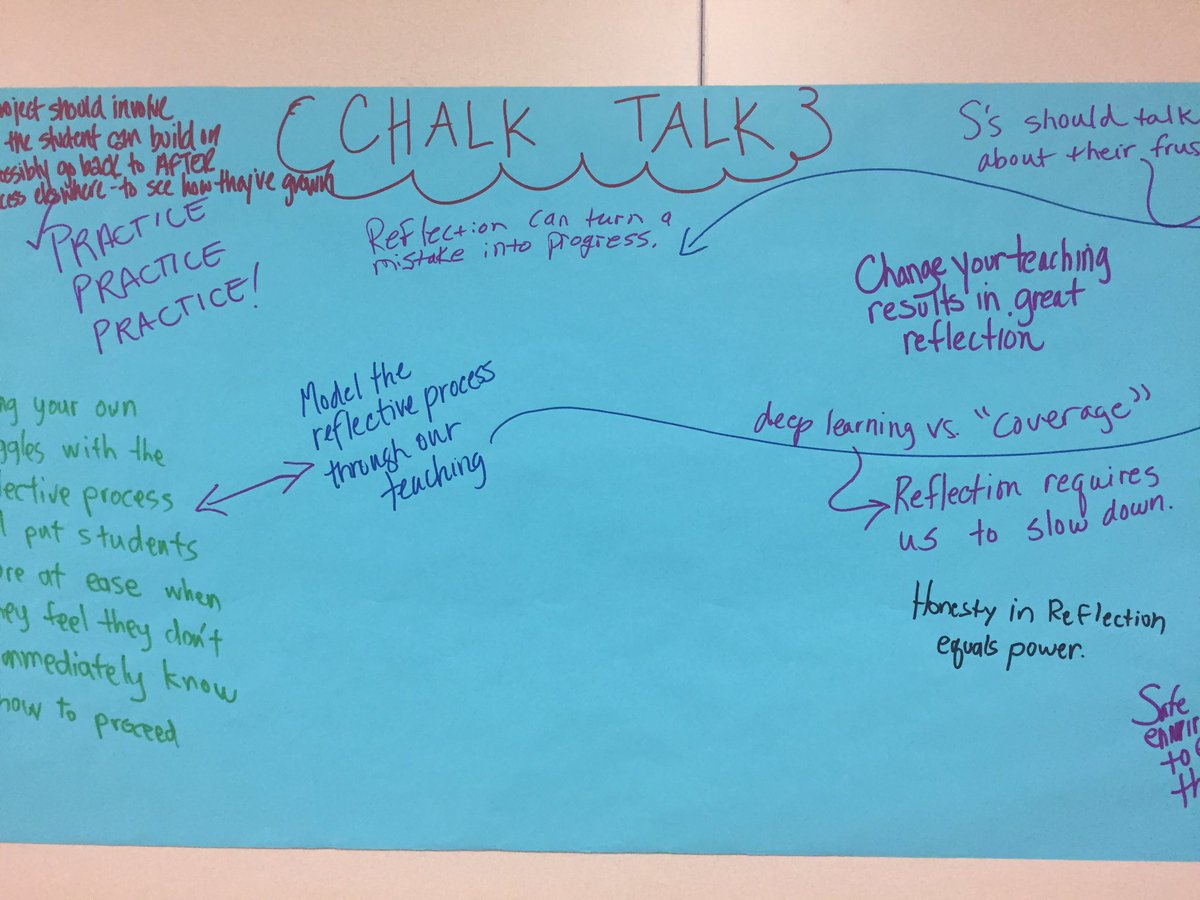 CHALK TALK
oject should involve
the student can build on
ossibly go back to AFTER
cess elsewhere - to see how they've grown
PRACTICE
PRACTICE
PRACTICE!
Reflection can turn a
mistake into progress.
S's should talk
about their frus
Change your teaching
results in great
reflection
Model the
reflective process
through our
teaching
ng your own
ggles with the
lective process
l put students
ore at ease when
hey feel they don't
mmediately know
how to proceed
deep learning vs. "coverage"
Reflection requires
us to slow down.
Honesty in Reflection
equals power.
Safe
envir
to
th